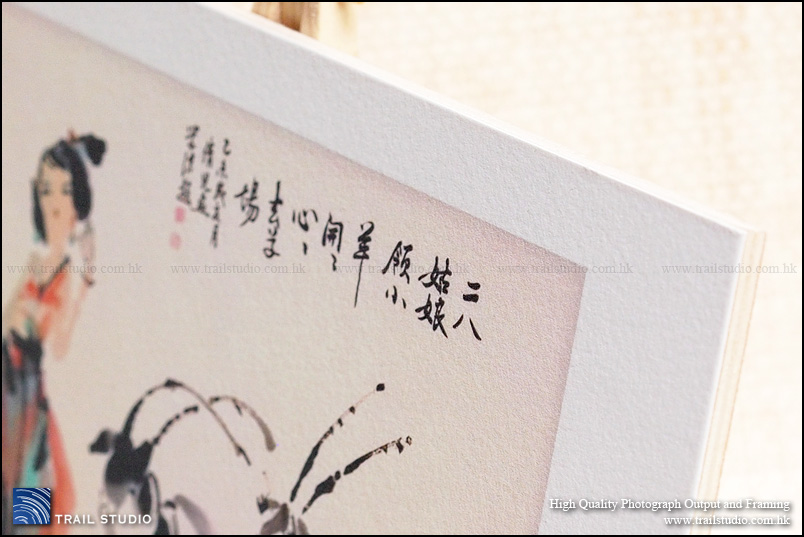 二八
姑娘
顾小
羊
開々
心々
去羊
場
乙未
www.trailstudio.com.hk www.trailstudio.com.hk www.trailstudio.com.hk www.trailstudio.com.hk www.trailstudio.com.hk
TRAIL STUDIO
High Quality Photograph Output and Framing
www.trailstudio.com.hk